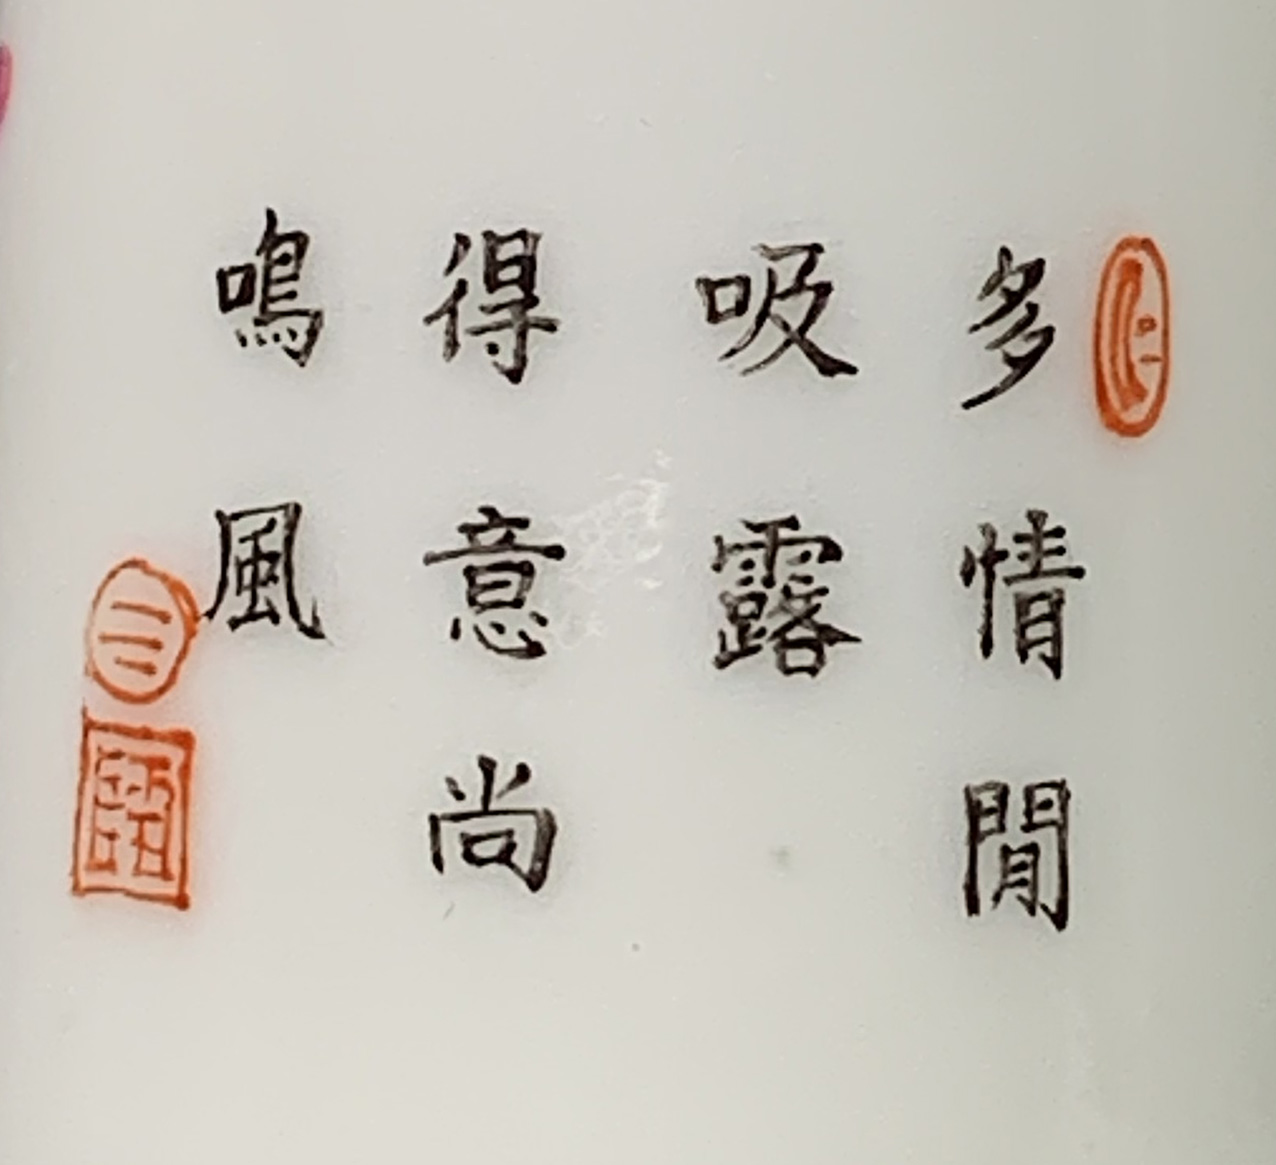 多情閒
吸露
得意尚
鳴風